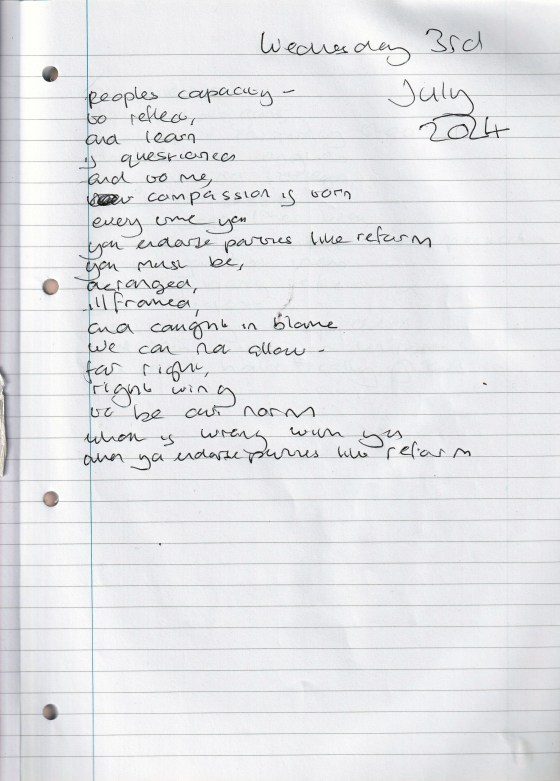 Wednesday 3rd
July
2024
peoples capacity -
to reflect,
and learn
is questioned
and to me,
compassion is torn
every time you
you endorse parties like reform
you must be,
deranged,
ill framed,
and caught in blame
we can not allow -
far right,
right wing
to be our norm
what is wrong with you
when ya endorse parties like reform